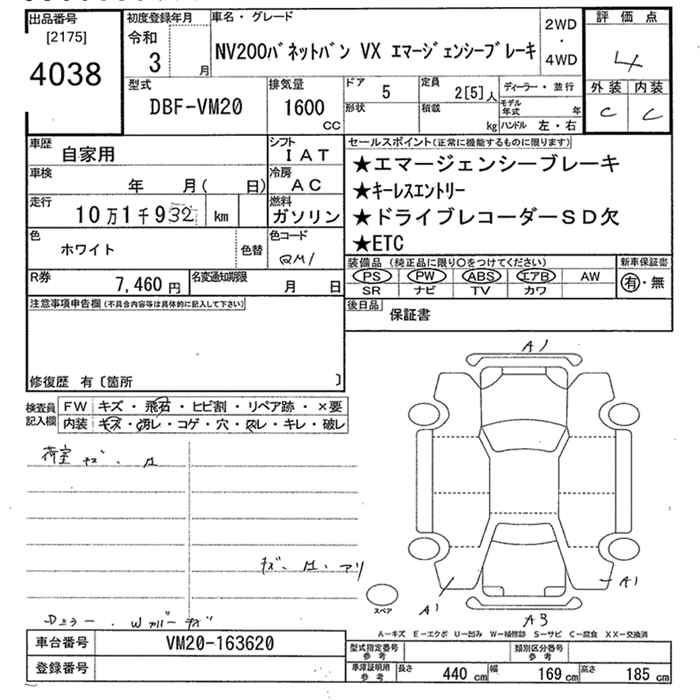 出品番号
[2175]
4038
初度登録年月
令和
3 月
車名・グレード
NV200バネットバン VX エマージェンシーブレーキ
2WD
・
4WD
評価点
4
外装 内装
C C
型式
DBF-VM20
排気量
1600
CC
ドア 5
形状
定員 2[5]人
積載 kg
ディーラー・並行
モデル年式 年
ハンドル 左・右
車歴
自家用
シフト
IAT
車検
年 月( 日)
冷房
AC
走行
10万1千932 km
燃料
ガソリン
色
ホワイト
色替
色コード
QM1
R券
7,460円
名変通知期限
月 日
セールスポイント(正常に機能するものに限ります)
★エマージェンシーブレーキ
★キーレスエントリー
★ドライブレコーダーSD欠
★ETC
装備品 (純正品に限り○をつけてください)
PS PW ABS エアB AW
SR ナビ TV カワ
新車保証書
有・無
後日品
保証書
注意事項申告欄(不具合内容等は具体的に記入して下さい)
修復歴 有〔箇所 〕
検査員
記入欄
FW キズ・飛石・ヒビ割・リペア跡・×要
内装 キズ・汚レ・コゲ・穴・スレ・キレ・破レ
荷室 キズ・
A1
A1
A1
A3
スペア
Dミラー・Wカバーキズ
A-キズ E-エクボ U-凹み W-補修跡 S-サビ C-腐食 XX-交換済
車台番号
VM20-163620
登録番号
型式指定番号
参考
類別区分番号
参考
車庫証明用
参考
長さ 440 cm 幅 169 cm 高さ 185 cm